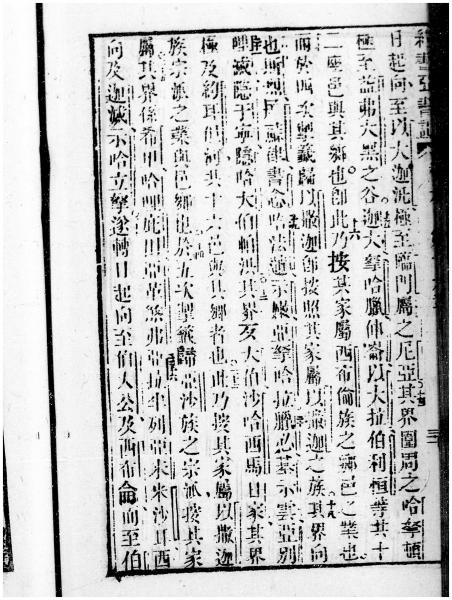 日起向至以大迦洗極至臨門屬之尼亞其界圍周之哈拏頓
極至益弗大黑之谷迦大拏哈臘伸崙以大拉伯利恒等共十
二座邑與其鄉也卽此乃按其家屬西布倫族之鄉邑之業也
而於四次掣籤屬以撒迦卽按照其家屬以撒迦之族其界向
也斯烈 書念哈法連示 亞拏哈拉臘必 示雲亞別
滅隱于寧隱哈大伯帕洪其界及大伯沙哈西馬日家其界
極及約耳但河共十六邑與其鄉者也此乃按其家屬以撒迦
族宗派之業與邑鄉也於五次掣籤歸亞沙族之宗派按其家
屬其界係希甲哈 田亞革煞弗亞拉 列亞米米沙耳西
向及迦滅示哈立拏遂轉日起向至伯大公及西布倫而至伯